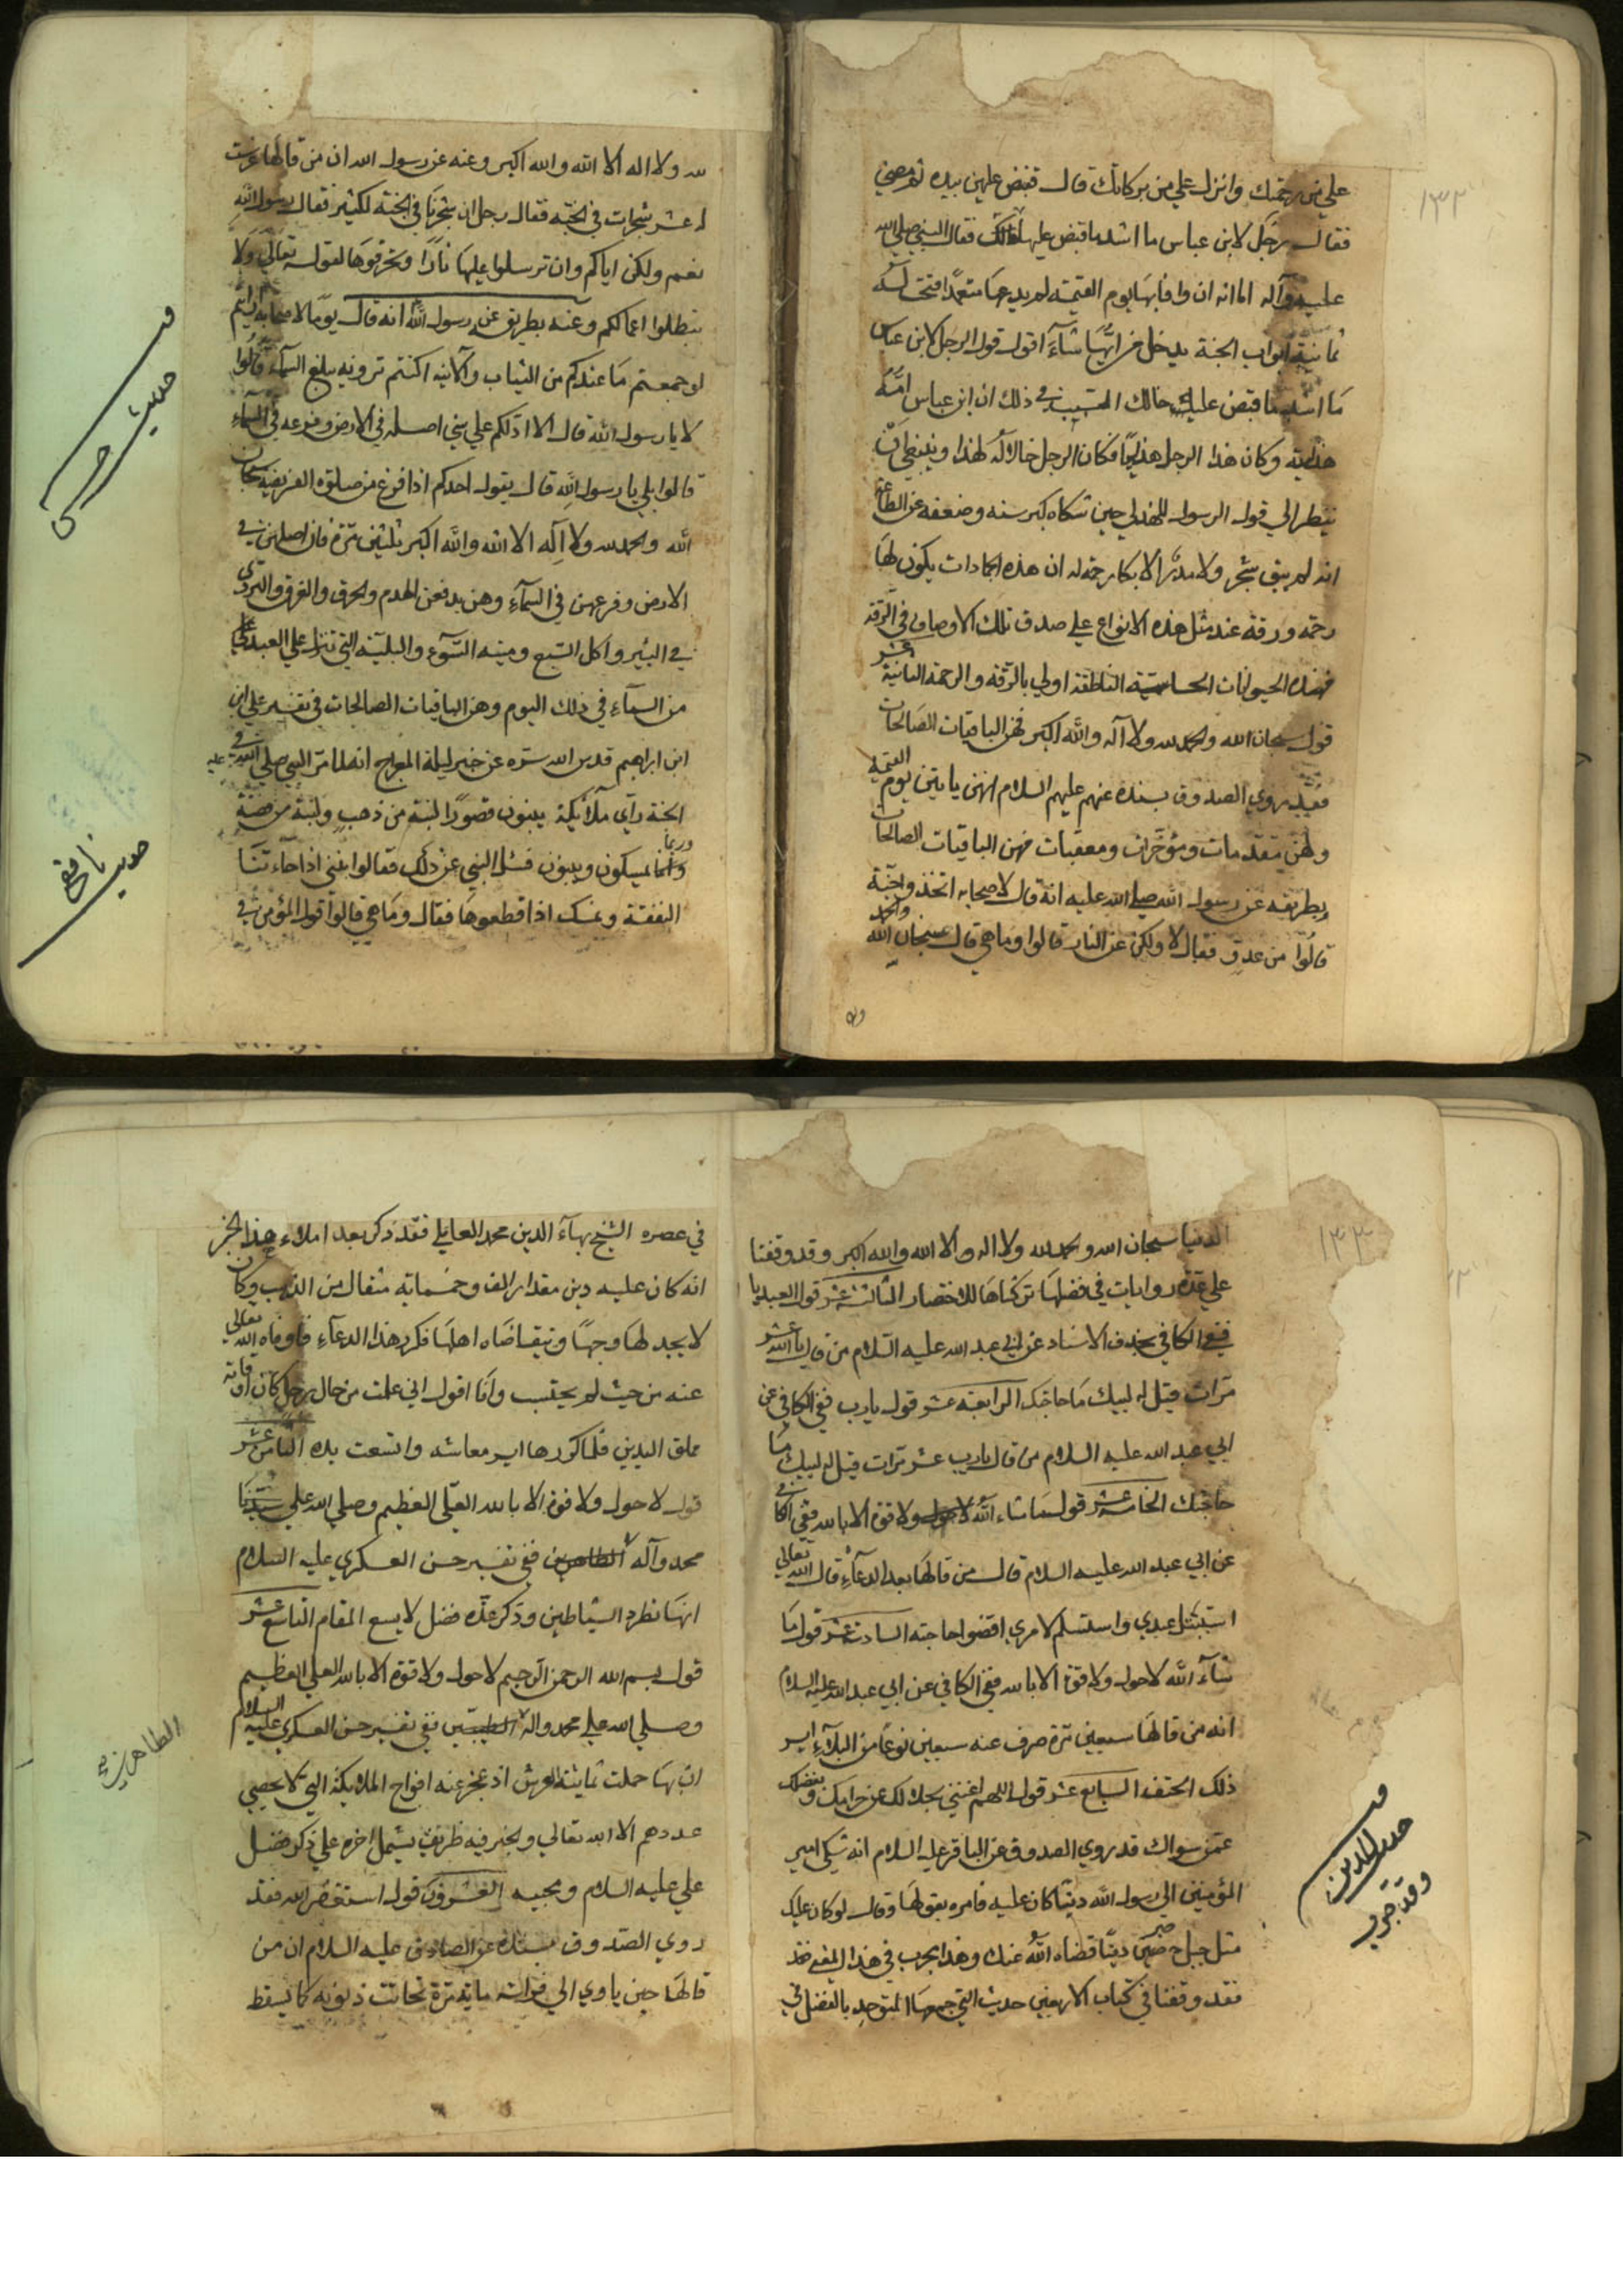 ١٣٢
علي من رحمتك وانزل علي من بركاتك قال فقبض عليهن بيده ثم مضي
فقال رجل لابن عباس ما اشد ما قبض عليها خالك فقال النبي صلي الله
عليه وآله اما انه ان وافا بها يوم القيمة لم يدعها متعمدًا فتحت له
ثمانية ابواب الجنة يدخل من ايها شاءَ اقول قول الرجل لابن عباس
مَا اشد ما قبض عليك خالك السبب في ذلك ان ابن عباس امّه
هذلية وكان هذا الرجل هذليًا فكان الرجل خالا له لهذا وينبغي ان
ينظر الي قول الرسول للهذلي حين شكاه كبر سنه وضعفه عن الطاعة
انه لم يبق شجر ولا مدر الا بكا رحمة له ان هذه الجمادات يكون لها
رحمة ورقة عند مثل هذه الانواع علي صدق تلك الاوصاف في الرقة
فهذه الحيوانات الحساسة الناطقة اولي بالرقة والرحمة الثانية عشر
قول سبحان الله والحمد لله ولا آله والله اكبر فهن الباقيات الصَالحات
فقد روي الصدوق بسنده عنهم عليهم السلام انهن ياتين يوم القيمة
ولهن مقدمات ومؤخرات ومعقبات فهن الباقيات الصالحات
وبطريقه عن رسول الله صلي الله عليه انه قال لاصحابه اتخذوا جنّة
قالوا من عدو فقال لا ولكن عن النار قالوا وما هي قال سبحان الله والحمد
لله ولا اله الا الله والله اكبر وعنه عن رسول الله ان من قالها غرست
له عشر شجرات في الجنّة فقال رجل ان شجرنا في الجنة لكثير فقال رسول الله
نعم ولكن اياكم وان ترسلوا عليها نارًا وتحرقوها لقوله تعالي ولا
تبطلوا اعمالكم وعنه بطريق عن رسول الله انه قال يومًا لاصحابه ارايتم
لو جمعتم مَا عندكم من الثياب والآنيه اكنتم ترونه يبلغ السماء قالوا
لا يا رسول الله قال الا ادلكم علي شي اصله في الارض وفرعه في السماءِ
قالوا بلي يا رسول الله قال يقول احدكم اذا فرغ من صلوته الفريضة سبحان
الله والحمد لله ولا آله الا الله والله اكبر ثلثين مرّة فان اصلهن في
الارض وفرعهن في السماءِ وهن يدفعن الهدم والحرق والغرق والتردي
في البئير واكل السبع وميتة السّوء والبليّة التي تنزل علي العبد
من السماء في ذلك اليوم وهن الباقيات الصالحات في تفسير علي ابن
ابن ابراهيم قدس الله سره عن خبر ليلة المعراج انه لما مرّ النبي صلي الله عليه في
الجنة رآي ملآئكة يبنون قصورًا لبنة من ذهب ولبنة من فضة
وربما يمسكون ويبنون فسئل النبي عن ذلك فقالوا نبني اذا جاءتنا
النفقة ونمسك اذا قطعوها فقال وما هي قالوا قول المؤمن في
حديث
حديث نافع
١٣٣
الدنيا سبحان الله والحمد لله ولا اله والا الله والله اكبر وقد وقفنا
علي عدّه روايات في فضلها تركناها للاختصار الثالثة عشر قول العبد يا
ففي الكافي بحذف الاسناد عن ابي عبد الله عليه السلام من قال يا الله عشر
مرّات قيل له لبيك مَا حاجتك الرابعة عشر قول يا رب ففي الكافي عن
ابي عبد الله عليه السلام من قال يا رب عشر مرّات قيل له لبيك مَا
حاجتك الخامسة عشر قول ما شاء الله لا حول ولا قوة الا بالله ففي الكافي
عن ابي عبد الله عليه السلام قال من قالها بعد الدعآءِ قال الله تعالي
استبتل عبدي واستسلم لامري اقضوا حاجته السادسة عشر قول مَا
شآءَ الله لا حول ولا قوة الا بالله ففي الكافي عن ابي عبد الله عليه السلام
انه من قالها سبعين مرّة صرف عنه سبعين نوعًا من البلآءِ ايسر
ذلك الحتف السابع عشر قول اللهم اغنني بحلالك عن حرامك وبفضلك
عمّن سواك قد روي الصدوق عن الباقر عليه السلام انه شكي امير
المؤمنين الي رسول الله دينًا كان عليه فامره بقولها وقال لو كان عليك
مثل جبل صبير دينًا قضاه الله عنك وهذا مجرب في هذا المعني فقد
فقد وقفنا في كتاب الاربعين حديث التي جمعها المتوحد بالفضل في
في عصره الشيخ بهآءَ الدين محمد العاملي فقد ذكر بعد املاء هذا الخبر
انه كان عليه دين مقدار الف وخمسمائة مثقال من الذهب وكان
لا يجد لها وجهًا ويتقاضاه اهلها فكرر هذا الدعآء فاوفاه الله تعالي
عنه من حيث لم يحتسب وانا اقول اني علمت من حال رجل كان اوقاته
مملق اليدين فلما كررها ايسر معاشه واتسعت يده الثامن عشر
قول لا حول ولا قوة الا بالله العلي العظيم وصلي الله علي سيدنا
محمد وآله الطاهرين ففي تفسير حسن العسكري عليه السلام
انها تطرد الشياطين وذكر عدّه فضل لا يسع المقام التاسع عشر
قول بسم الله الرحمن الرحيم لا حول ولا قوة الا بالله العلي العظيم
وصلي الله علي محمد واله الطيبين ففي تفسير حسن العسكري عليه السلام
ان بها حملت ثمانية العرش اذ عجز عنه افواج الملائكة التي لا يحصي
عددهم الا الله تعالي والخبر فيه ظريف يشمل اخره علي ذكر فضل
علي عليه السلام ومحبيه العشرون قول استغفر الله فقد
روي الصدوق بسنده عن الصادق عليه السلام ان من
قالها حين ياوي الي فراشه مائة مرة تحاتت ذنوبه كما يسقط
الطاهرين
وقد جرب